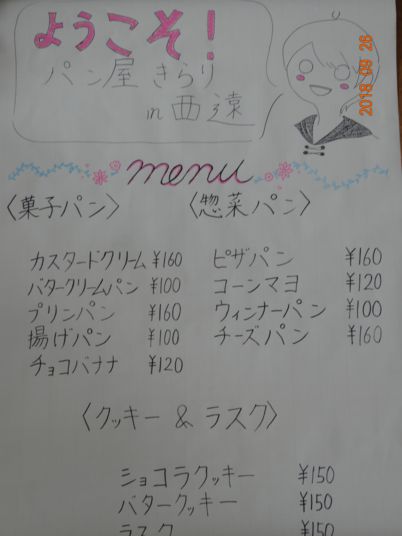 ようこそ!
パン屋きらり
in 西遠
2018 09 26
menu
〈菓子パン〉 〈惣菜パン〉
カスタードクリーム ¥160 ピザパン ¥160
バタークリームパン ¥100 コーンマヨ ¥120
プリンパン ¥160 ウィンナーパン ¥100
揚げパン ¥100 チーズパン ¥160
チョコバナナ ¥120
〈クッキー & ラスク〉
ショコラクッキー ¥150
バタークッキー ¥150
ラスク ¥150